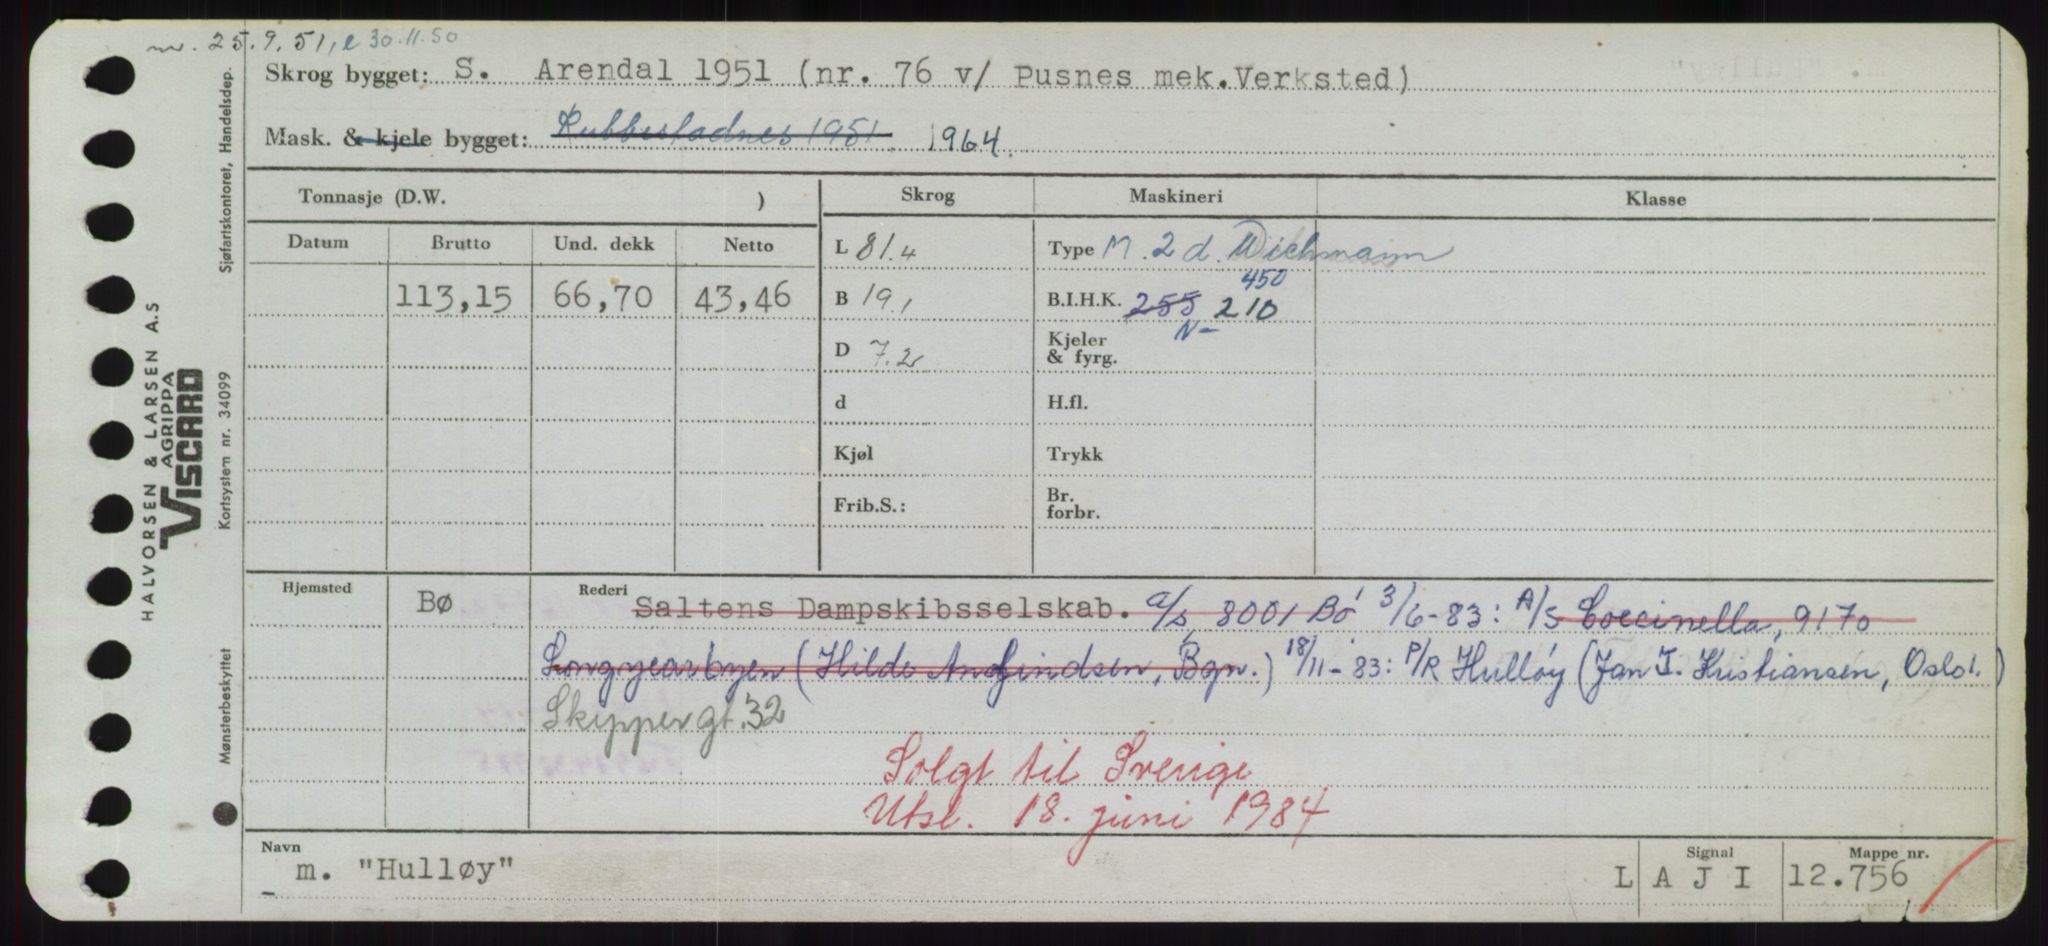 nr. 25.9.51, e 30.11.50
Skrog bygget: S. Arendal 1951 (nr. 76 v/ Pusnes mek.Verksted)
Mask. & kjele bygget: Rubbestadnes 1951 1964.
Tonnasje (D.W. ) Skrog Maskineri Klasse
Datum Brutto Und. dekk Netto L 81.4 Type M. 2 d. Wichmann
450
113,15 66,70 43,46 B 19,1 B.I.H.K. 255 210
N-
D 7.2 Kjeler
& fyrg.
d H.fl.
Kjøl Trykk
Frib.S.: Br.
forbr.
Hjemsted Bø Rederi Saltens Dampskibsselskab. a/s, 8001 Bø 3/6-83: A/S Coccinella, 9170
Longyearbyen (Hilde Amfindsen, Bgn.) 18/11-83: P/R Hulløy (Jan T. Kristiansen, Oslo 1.)
Skippergt. 32
Solgt til Sverige
Utsl. 18. juni 1984
Navn Signal Mappe nr.
m. "Hulløy" L A J I 12.756
HALVORSEN & LARSEN A.S
AGRIPPA
VISCARD
Sjøfartskontoret, Handelsdep.
Kortsystem nr. 34099
Mønsterbeskyttet